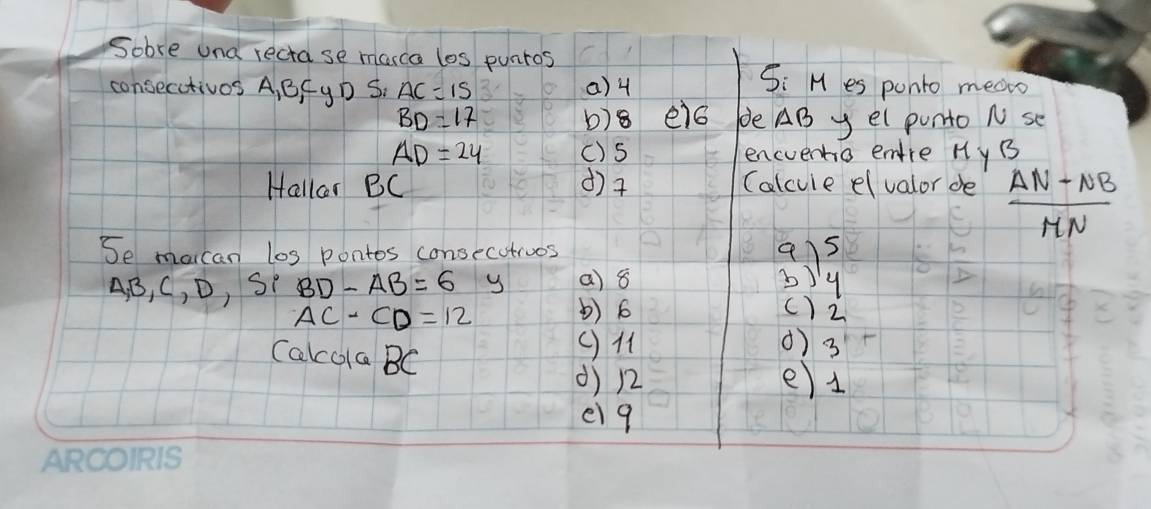 Sobre una recta se marca los puntos
consecutivos A,B,C y D Si AC = 15
BD = 17
AD = 24
Hallar BC
a) 4
b) 8 e) 6
c) 5
d) 7
Se marcan los pontos consecutivos
A,B,C,D, Si BD - AB = 6 y
AC - CD = 12
Calcola BC
a) 8
b) 6
c) 11
d) 12
e) 9
Si M es punto medio
de AB y el punto N se
encuentra entre M y B
Calcule el valor de AN - NB
MN
a) 5
b) 4
c) 2
d) 3
e) 1
ARCOIRIS